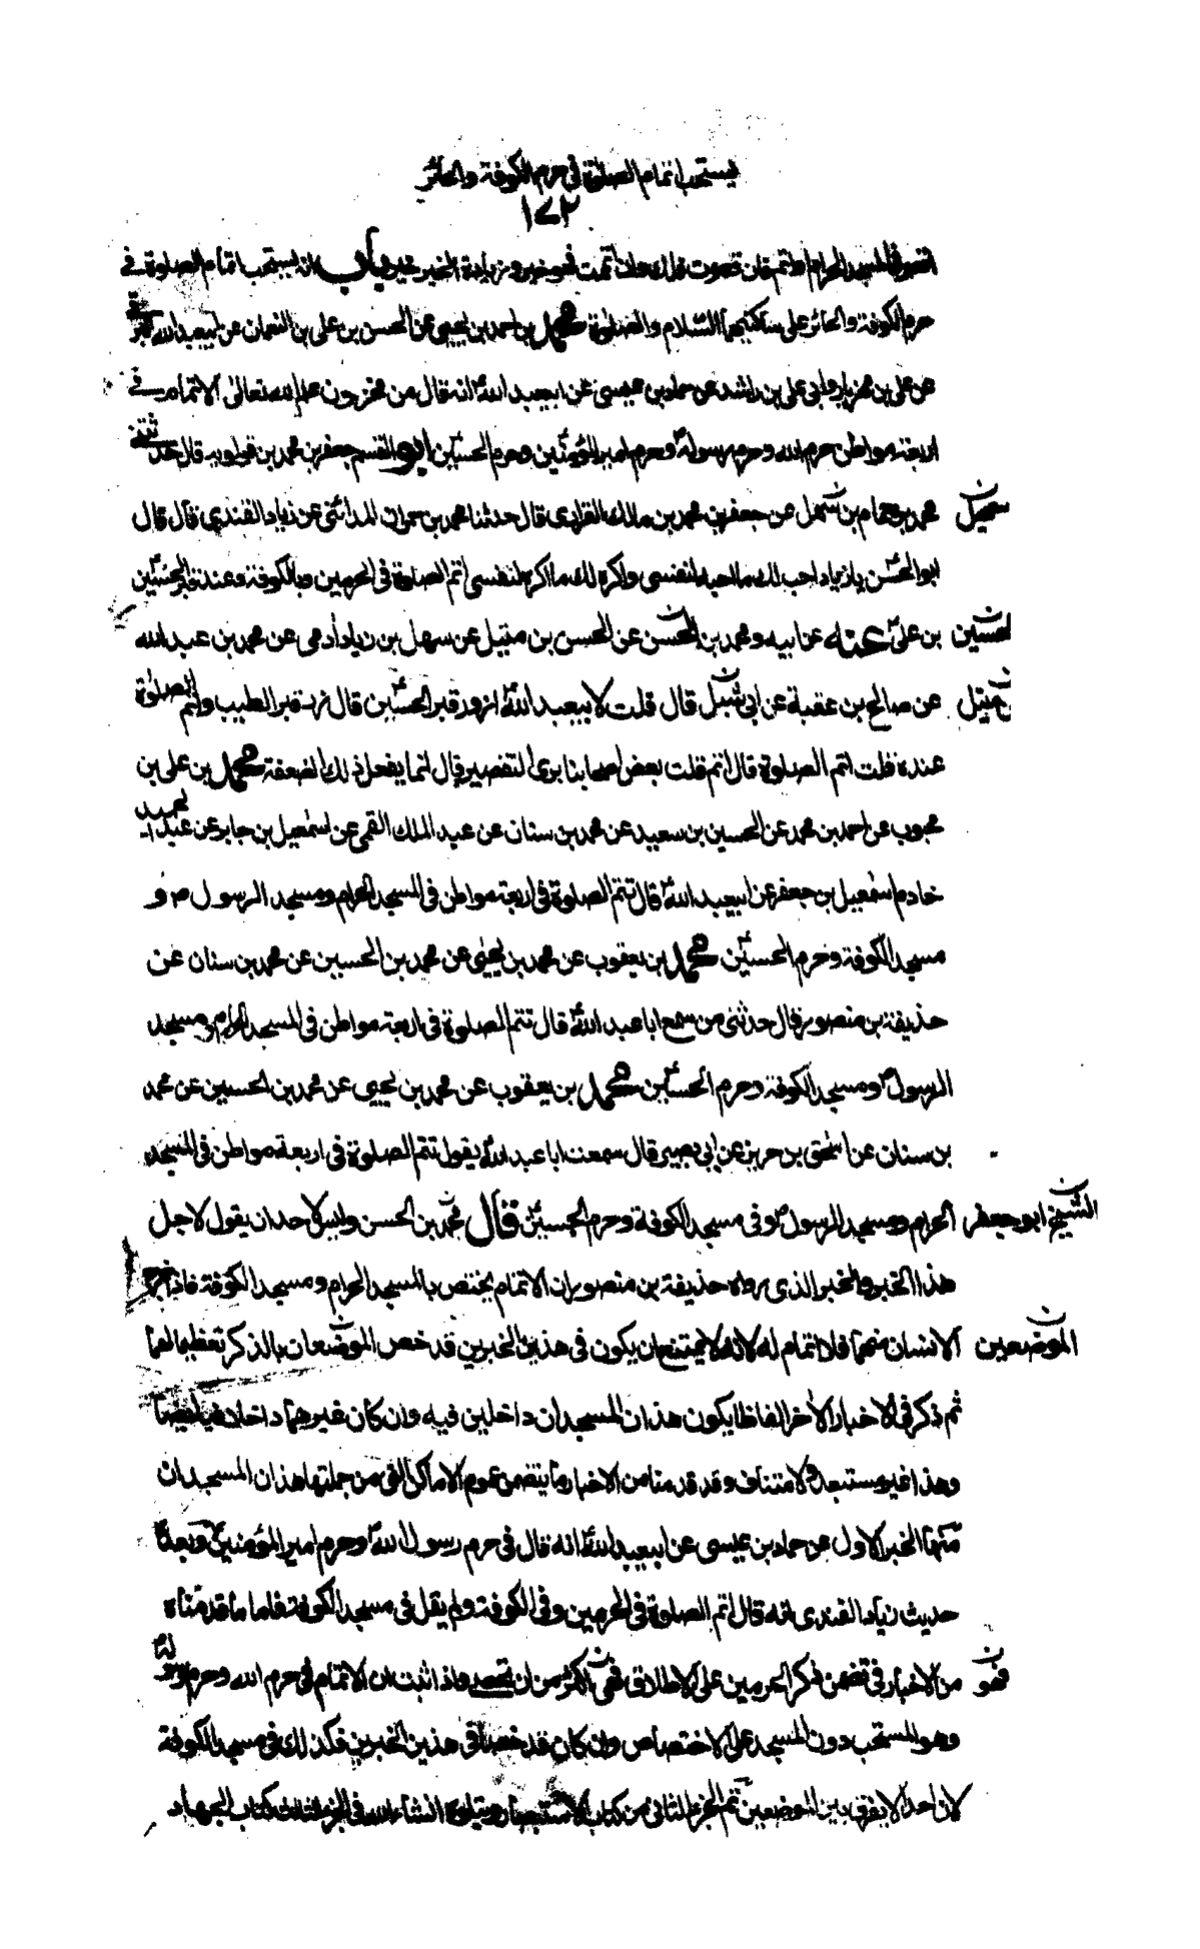 يستحب اتمام الصلوة في حرم الكوفة والحائر
١٧٢
اقصر في المسجد الحرام او اتم قال قصرت فلك وان اتممت فهو خير وزيادة الخير خير باب انه يستحب اتمام الصلوة في
حرم الكوفة والحائر على ساكنيهما السلام والصلوة محمد بن احمد بن يحيى عن الحسن بن علي بن النعمان عن ابيعبد الله البرقي
عن علي بن مهزيار وابي علي بن راشد عن حماد بن عيسى عن ابيعبد الله ع انه قال من مخزون علم الله تعالى الاتمام في
اربعة مواطن حرم الله وحرم رسوله ص وحرم امير المؤمنين وحرم الحسين ابو القسم جعفر بن محمد بن قولويه قال حدثني
محمد بن همام بن سهل عن جعفر بن محمد بن مالك الفزاري قال حدثنا محمد بن حمران المدائني عن زياد القندي قال قال
سهيل ن
ابو الحسن يا زياد احب لك ما احبه لنفسي واكره لك ما اكره لنفسي اتم الصلوة في الحرمين وبالكوفة وعند قبر الحسين
بن علي ع عنه عن ابيه ومحمد بن الحسن عن الحسن بن متيل عن سهل بن زياد ادمى عن محمد بن عبد الله
الحسين ن
عن صالح بن عقبة عن ابي شبل قال قلت لابيعبد الله ع ازور قبر الحسين قال زر قبر الطيب واتم الصلوة
متيل ن
عنده فقلت اتم الصلوة قال اتم قلت بعض اصحابنا يرى التقصير قال انما يفعل ذلك الضعفة محمد بن علي بن
محبوب عن احمد بن محمد عن الحسين بن سعيد عن محمد بن سنان عن عبد الملك القمي عن اسمعيل بن جابر عن عبد الحميد
خادم اسمعيل بن جعفر عن ابيعبد الله ع قال تتم الصلوة في اربعة مواطن في المسجد الحرام ومسجد الرسول ص و
مسجد الكوفة وحرم الحسين محمد بن يعقوب عن محمد بن يحيى عن محمد بن الحسين عن محمد بن سنان عن
حذيفة بن منصور قال حدثني من سمع ابا عبد الله ع قال تتم الصلوة في اربعة مواطن في المسجد الحرام ومسجد
الرسول ص ومسجد الكوفة وحرم الحسين محمد بن يعقوب عن محمد بن يحيى عن محمد بن الحسين عن محمد
بن سنان عن اسحق بن حريز عن ابي بصير قال سمعت ابا عبد الله ع يقول تتم الصلوة في اربعة مواطن في المسجد
الحرام ومسجد الرسول ص وفي مسجد الكوفة وحرم الحسين قال محمد بن الحسن وليس لاحد ان يقول لاجل
الشيخ ابو جعفر ن
هذا الخبر والخبر الذي رواه حذيفة بن منصور ان الاتمام يختص بالمسجد الحرام ومسجد الكوفة فاذا خرج
الانسان منهما فلا اتمام له لانه لا يمتنع ان يكون في هذين الخبرين قد خص الموضعان بالذكر تعظيما لهما
الموضعين ن
ثم ذكر في الاخبار الاخر الفاظا يكون هذان المسجدان داخلين فيه وان كان غيرهما داخلا فيه ايضا
وهذا غير مستبعد ولا متناف وقد قدمنا من الاخبار ما يتضمن عموم الاماكن التي من جملتها هذان المسجدان
منها الخبر الاول عن حماد بن عيسى عن ابيعبد الله ع انه قال في حرم رسول الله وحرم امير المؤمنين وبعده
حديث زياد القندي انه قال اتم الصلوة في الحرمين وفي الكوفة ولم يقل في مسجد الكوفة فاما ما قدمناه
من الاخبار في تضمن ذكر الحرمين على الاطلاق فهي اكثر من ان تحصى واذا ثبت ان الاتمام في حرم الله وحرم رسوله
فهو ن
وهو المستحب دون المسجد على الاختصاص وان كان قد خصا في هذين الخبرين فكذلك في مسجد الكوفة
لان احدا لا يفرق بين الموضعين تم الجزء الثاني من كتاب الاستبصار ويتلوه انشاء الله في الجزء الثالث كتاب الجهاد